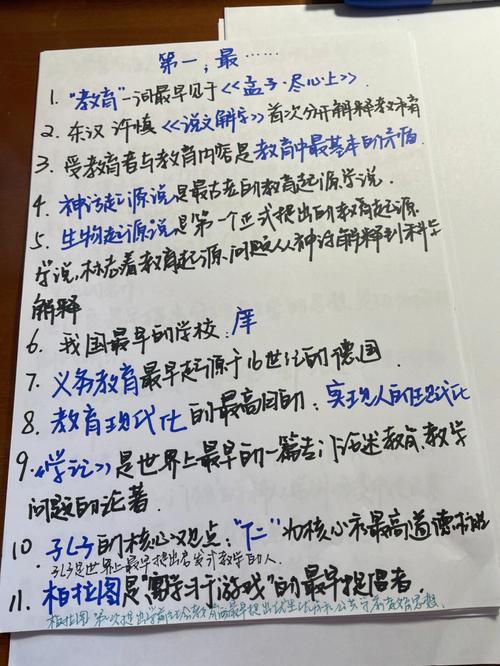 第一,最……
1. "教育"一词最早见于《孟子·尽心上》.
2. 东汉 许慎《说文解字》首次分开解释教和育
3. 受教育者与教育内容是教育中最基本的矛盾.
4. 神话起源说是最古老的教育起源学说.
5. 生物起源说是第一个正式提出的教育起源
学说,标志着教育起源问题从神话解释到科学
解释
6. 我国最早的学校:庠
7. 义务教育最早起源于16世纪的德国.
8. 教育现代化的最高目的:实现人的现代化
9.《学记》是世界上最早的一篇专门论述教育、教学
问题的论著.
10. 孔子的核心观点:"仁"为核心和最高道德标准
孔子是世界上最早提出启发式教学的人
11. 柏拉图是"寓学习于游戏"的最早提倡者.
柏拉图 第一次提出学前社会教育